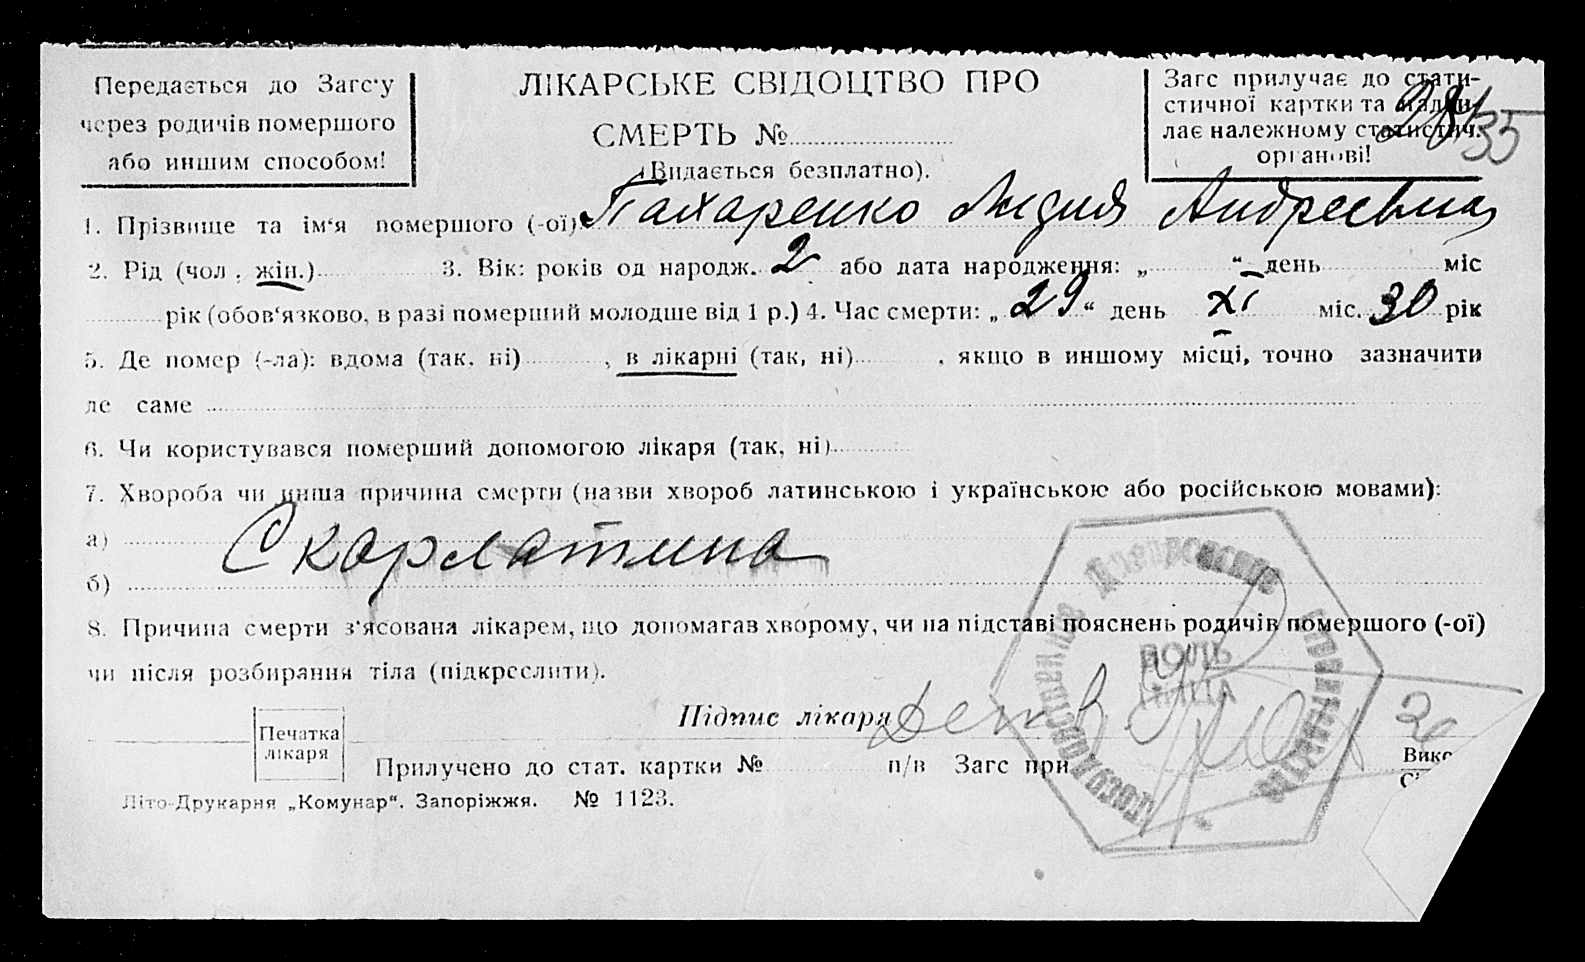 Передається до Загс‘у
через родичів помершого
або иншим способом!
ЛІКАРСЬКЕ СВІДОЦТВО ПРО
СМЕРТЬ №
(Видається безплатно).
Загс прилучає до стати-
стичної картки та надси-
лає належному статистич.
органові!
35
1. Прізвище та ім‘я помершого (-ої) Пахаренко Лидия Андреевна
2. Рід (чол., жін.) 3. Вік: років од народж. 2 або дата народження: „ “ день міс
рік (обов‘язково, в разі померший молодше від 1 р.) 4. Час смерти: „ 29 “ день XI міс. 30 рік
5. Де помер (-ла): вдома (так, ні) , в лікарні (так, ні) , якщо в иншому місці, точно зазначити
де саме
6. Чи користувався померший допомогою лікаря (так, ні)
7. Хвороба чи инша причина смерти (назви хвороб латинською і українською або російською мовами):
а) Скарлатина
б)
8. Причина смерти з‘ясована лікарем, що допомагав хворому, чи на підставі пояснень родичів помершого (-ої)
чи після розбирання тіла (підкреслити).
Підпис лікаря
Печатка
лікаря
Прилучено до стат. картки № п/в Загс при
Вик
Літо-Друкарня „Комунар“. Запоріжжя. № 1123.
Днепровского
БОЛЬ
НИЦА